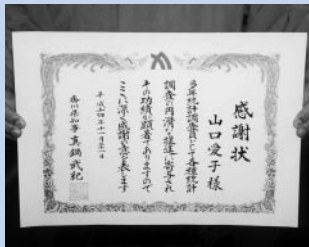 感謝状
山口愛子様
多年統計調査員として各種統計
調査の円滑な推進に寄与され
その功績が顕著でありますので
ここに深く感謝の意を表します
平成十四年十一月二十一日
香川県知事 真鍋武紀